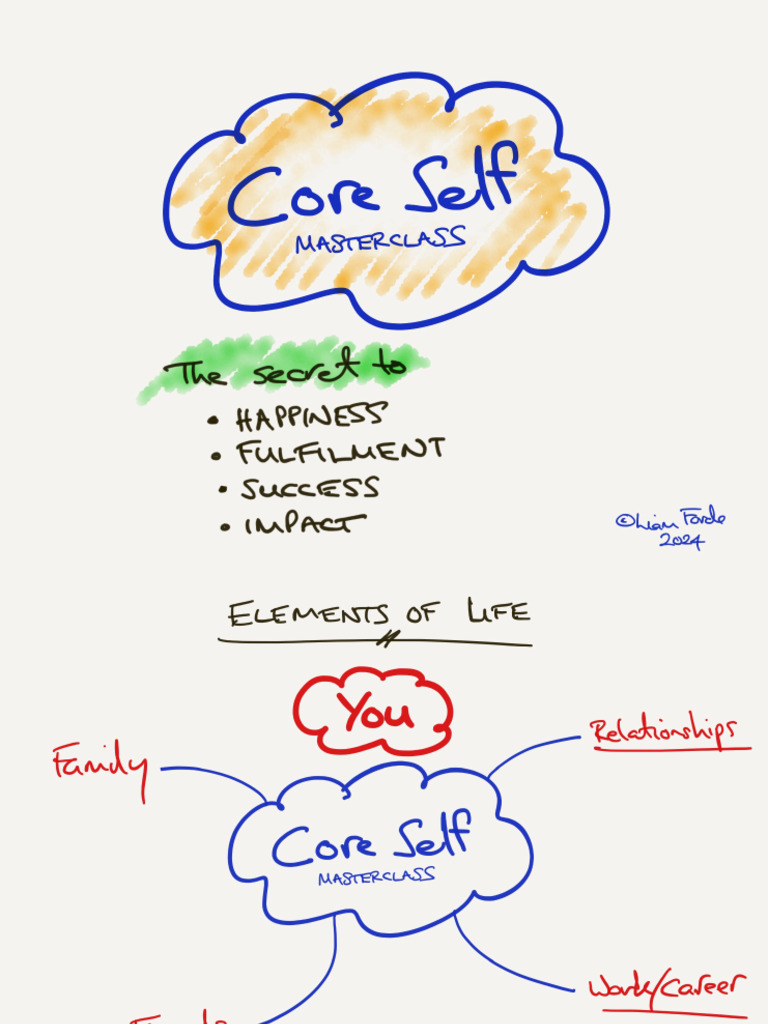 Core Self
MASTERCLASS
The secret to
• HAPPINESS
• FULFILMENT
• SUCCESS
• IMPACT
©Liam Forde
2024
ELEMENTS OF LIFE
You
Family
Relationships
Core Self
MASTERCLASS
Work/Career